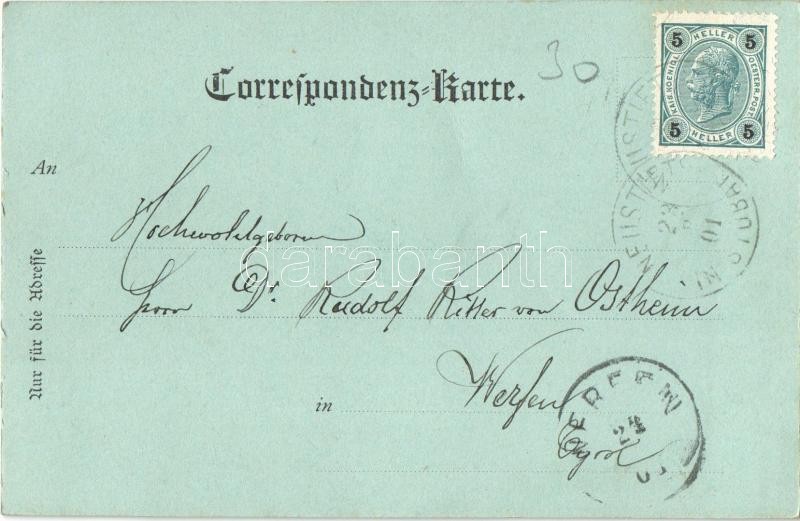 30
Correspondenz-Karte.
5 HELLER 5
KAIS. KOENIGL. OESTERR. POST.
5 HELLER 5
NEUSTIFT IN STUBAI
01
An
Hochwohlgeboren
Herrn Dr Rudolf Ritter von Ostheim
in Werfen
Tyrol
WERFEN
Nur für die Adresse
darabanth